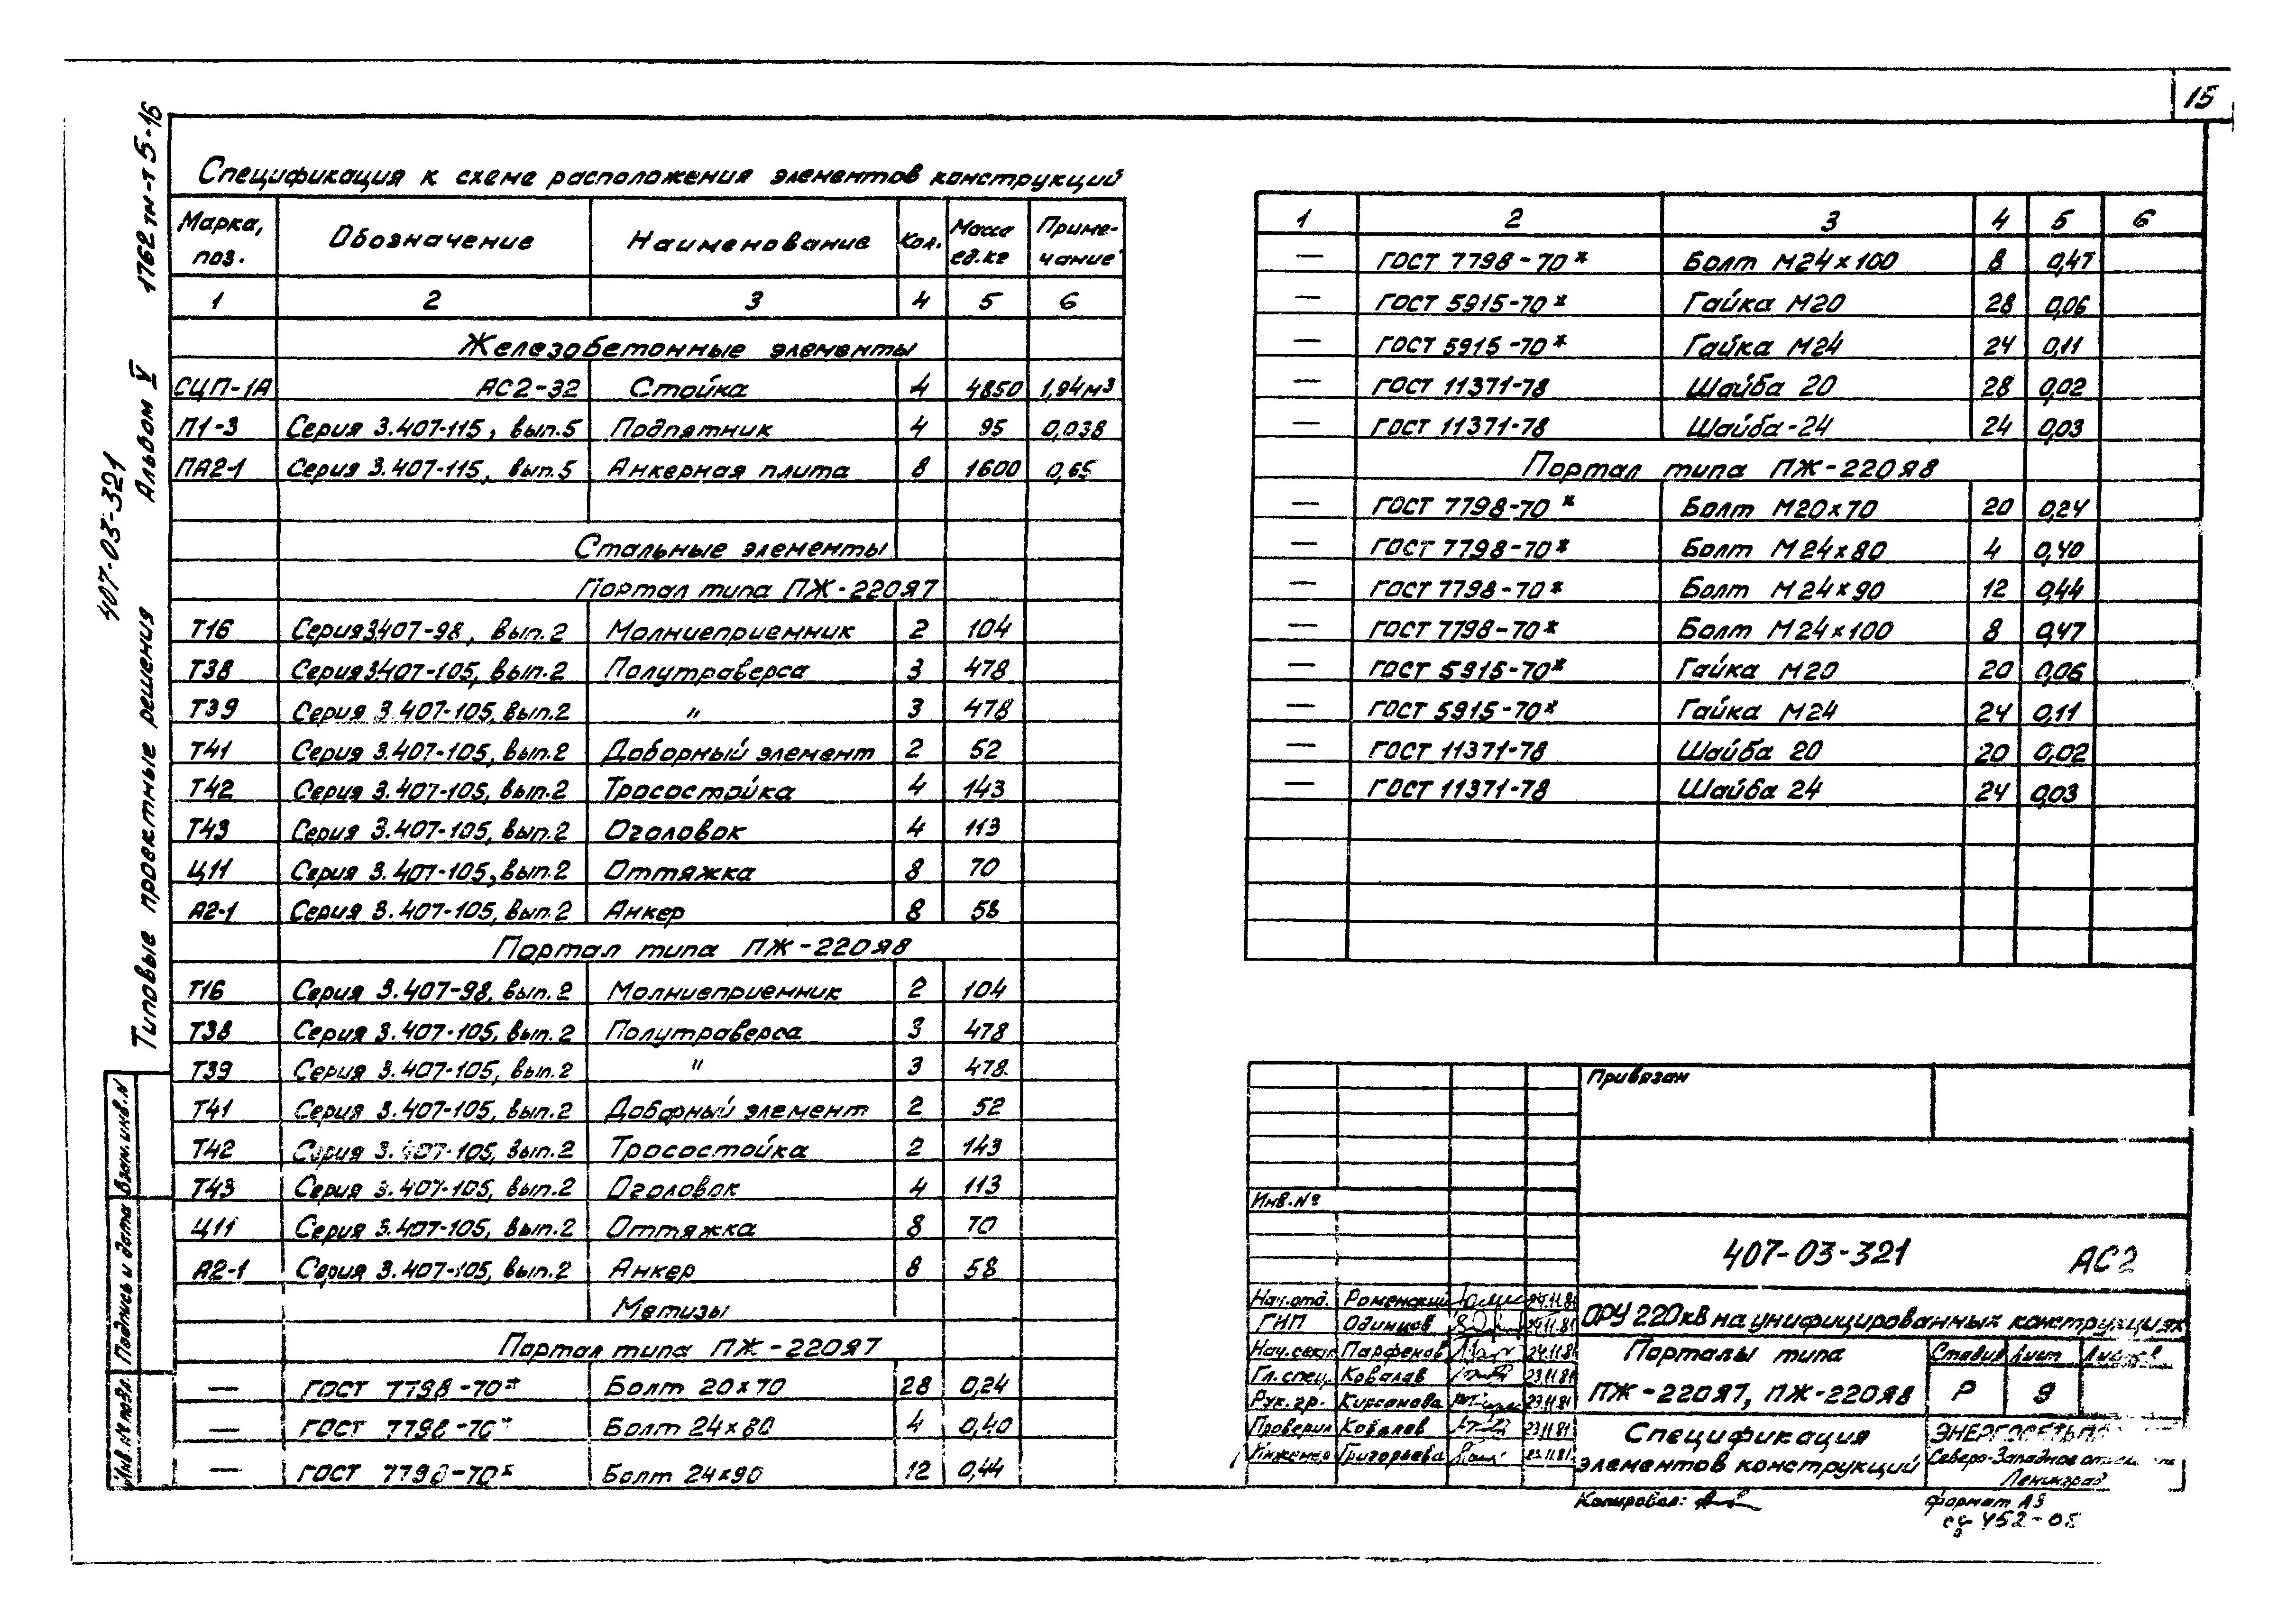 15
1762тм-т5-15
407-03-321
Альбом V
Типовые проектные решения
Взам.инв.N
Подпись и дата
Инв.№ подл.
Спецификация к схеме расположения элементов конструкций
Марка, поз. Обозначение Наименование Кол. Масса ед.кг Приме-чание
1 2 3 4 5 6
Железобетонные элементы
СЦП-1А АС2-32 Стойка 4 4850 1,94м3
П1-3 Серия 3.407-115, вып.5 Подпятник 4 95 0,038
ПА2-1 Серия 3.407-115, вып.5 Анкерная плита 8 1600 0,65
Стальные элементы
Портал типа ПЖ-220Я7
Т16 Серия3407-98, вып.2 Молниеприемник 2 104
Т38 Серия3407-105, вып.2 Полутраверса 3 478
Т39 Серия 3.407-105, вып.2 " 3 478
Т41 Серия 3.407-105, вып.2 Доборный элемент 2 52
Т42 Серия 3.407-105, вып.2 Тросостойка 4 143
Т43 Серия 3.407-105, вып.2 Оголовок 4 113
Ц11 Серия 3.407-105, вып.2 Оттяжка 8 70
А2-1 Серия 3.407-105, вып.2 Анкер 8 58
Портал типа ПЖ-220Я8
Т16 Серия 3.407-98, вып.2 Молниеприемник 2 104
Т38 Серия 3.407-105, вып.2 Полутраверса 3 478
Т39 Серия 3.407-105, вып.2 " 3 478
Т41 Серия 3.407-105, вып.2 Доборный элемент 2 52
Т42 Серия 3.407-105, вып.2 Тросостойка 2 143
Т43 Серия 3.407-105, вып.2 Оголовок 4 113
Ц11 Серия 3.407-105, вып.2 Оттяжка 8 70
А2-1 Серия 3.407-105, вып.2 Анкер 8 58
Метизы
Портал типа ПЖ-220Я7
— ГОСТ 7798-70* Болт 20×70 28 0,24
— ГОСТ 7798-70* Болт 24×80 4 0,40
— ГОСТ 7798-70* Болт 24×90 12 0,44
1 2 3 4 5 6
— ГОСТ 7798-70* Болт М24×100 8 0,47
— ГОСТ 5915-70* Гайка М20 28 0,06
— ГОСТ 5915-70* Гайка М24 24 0,11
— ГОСТ 11371-78 Шайба 20 28 0,02
— ГОСТ 11371-78 Шайба-24 24 0,03
Портал типа ПЖ-220Я8
— ГОСТ 7798-70* Болт М20×70 20 0,24
— ГОСТ 7798-70* Болт М24×80 4 0,40
— ГОСТ 7798-70* Болт М24×90 12 0,44
— ГОСТ 7798-70* Болт М24×100 8 0,47
— ГОСТ 5915-70* Гайка М20 20 0,06
— ГОСТ 5915-70* Гайка М24 24 0,11
— ГОСТ 11371-78 Шайба 20 20 0,02
— ГОСТ 11371-78 Шайба 24 24 0,03
Привязан
Инв.№
407-03-321 АС2
Нач.отд. Роменский 24.11.81
ГИП Одинцов 24.11.81
Нач.сект. Парфенов 24.11.81
Гл.спец. Ковалев 23.11.81
Рук.гр. Кирсанова 23.11.81
Проверил Ковалев 23.11.81
Инженер Григорьева 23.11.81
ОРУ 220кВ на унифицированных конструкциях
Порталы типа
ПЖ-220Я7, ПЖ-220Я8
Стадия Лист Листов
Р 9
Спецификация
элементов конструкций
Северо-Западное
Ленинград
Копировал:
формат А3